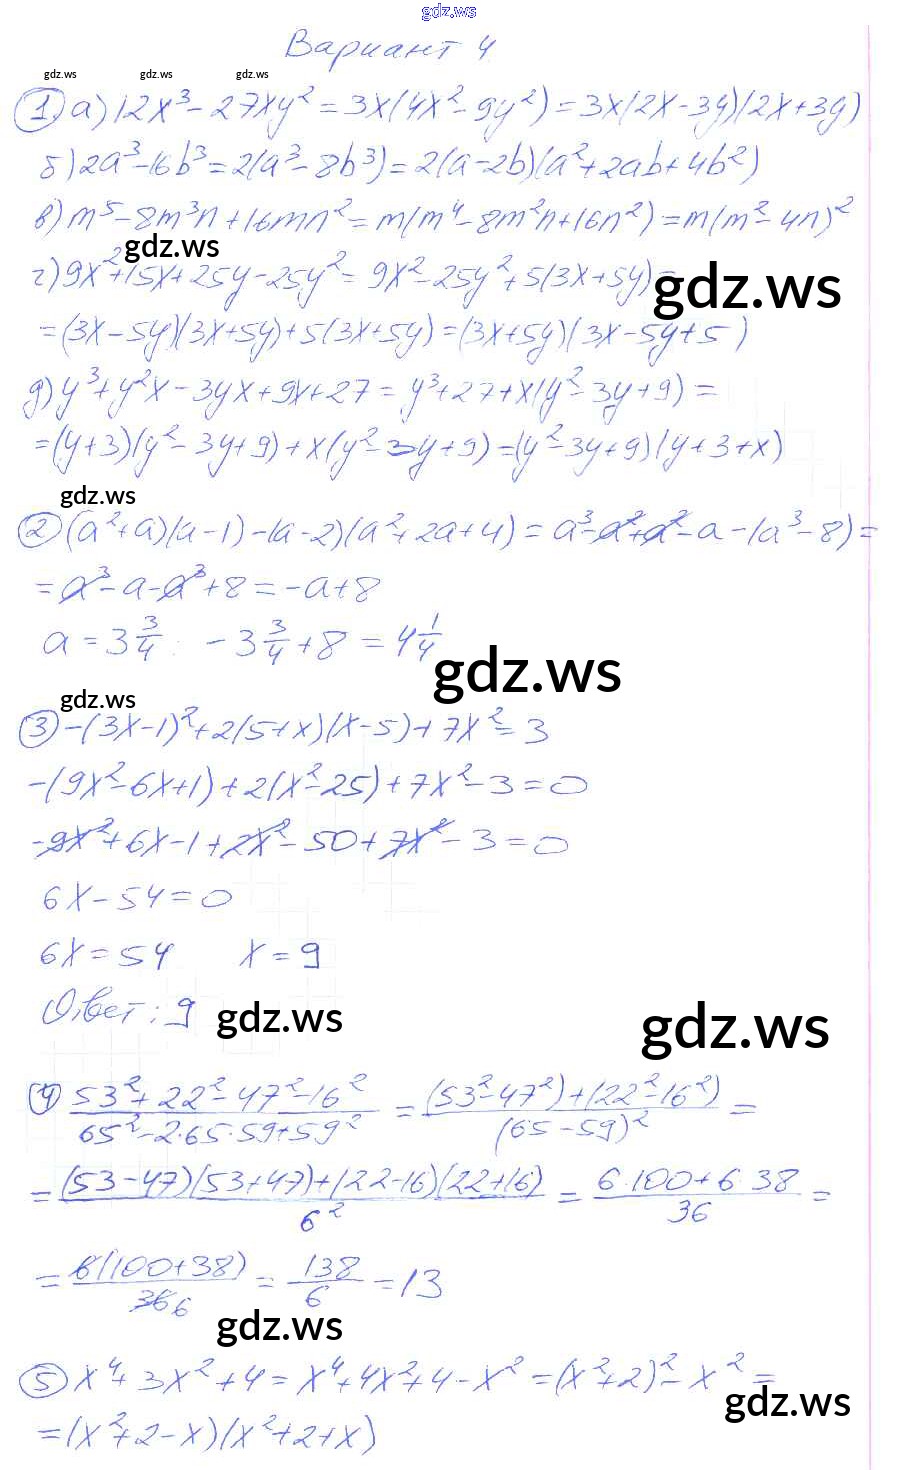 gdz.ws
Вариант 4
gdz.ws gdz.ws gdz.ws
① а) 12x³ - 27xy² = 3x(4x² - 9y²) = 3x(2x - 3y)(2x + 3y)
б) 2a³ - 16b³ = 2(a³ - 8b³) = 2(a - 2b)(a² + 2ab + 4b²)
в) m⁵ - 8m³n + 16mn² = m(m⁴ - 8m²n + 16n²) = m(m² - 4n)²
gdz.ws
г) 9x² + 15x + 25y - 25y² = 9x² - 25y² + 5(3x + 5y) =
gdz.ws
= (3x - 5y)(3x + 5y) + 5(3x + 5y) = (3x + 5y)(3x - 5y + 5)
д) y³ + y²x - 3yx + 9x + 27 = y³ + 27 + x(y² - 3y + 9) =
= (y + 3)(y² - 3y + 9) + x(y² - 3y + 9) = (y² - 3y + 9)(y + 3 + x)
gdz.ws
② (a² + a)(a - 1) - (a - 2)(a² + 2a + 4) = a³ - a² + a² - a - (a³ - 8) =
= a³ - a - a³ + 8 = -a + 8
a = 3 3/4 : - 3 3/4 + 8 = 4 1/4
gdz.ws
gdz.ws
③ -(3x - 1)² + 2(5 + x)(x - 5) + 7x² = 3
-(9x² - 6x + 1) + 2(x² - 25) + 7x² - 3 = 0
-9x² + 6x - 1 + 2x² - 50 + 7x² - 3 = 0
6x - 54 = 0
6x = 54 x = 9
Ответ: 9
gdz.ws
gdz.ws
④ (53² + 22² - 47² - 16²)/(65² - 2·65·59 + 59²) = ((53² - 47²) + (22² - 16²))/(65 - 59)² =
= ((53 - 47)(53 + 47) + (22 - 16)(22 + 16))/6² = (6·100 + 6·38)/36 =
= 6(100 + 38)/36 6 = 138/6 = 13
gdz.ws
⑤ x⁴ + 3x² + 4 = x⁴ + 4x² + 4 - x² = (x² + 2)² - x² =
gdz.ws
= (x² + 2 - x)(x² + 2 + x)